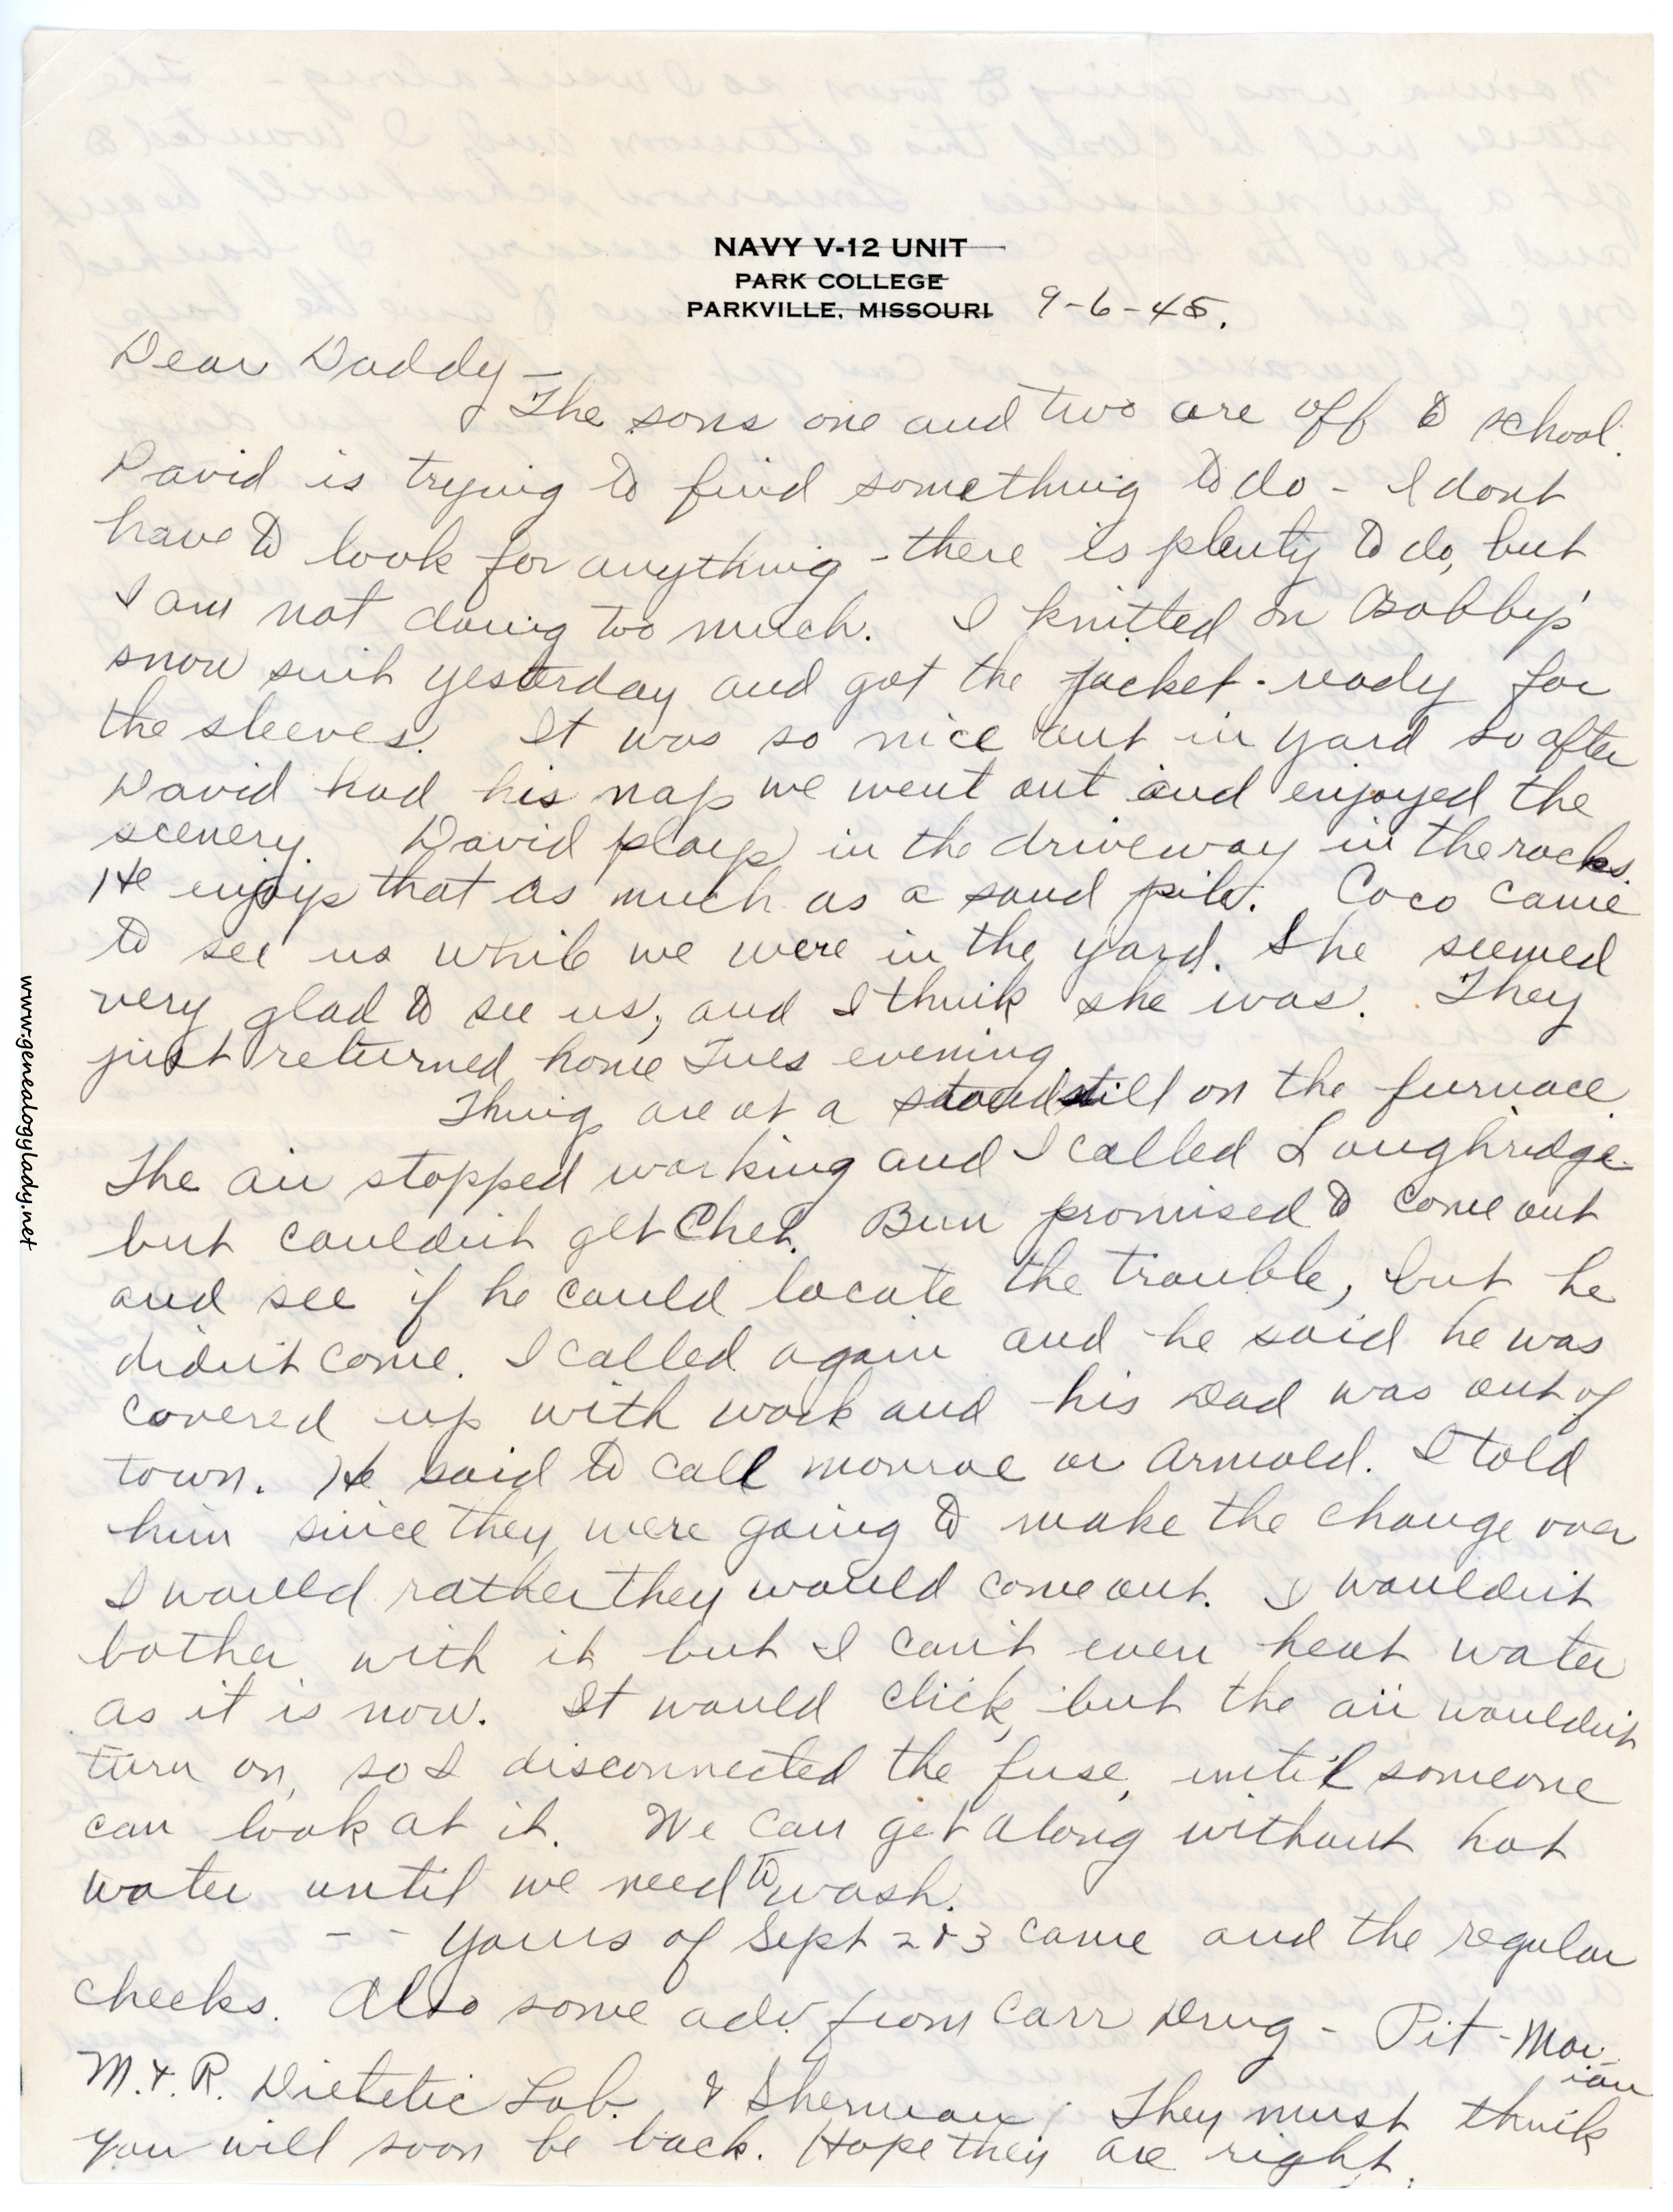 NAVY V-12 UNIT
PARK COLLEGE
PARKVILLE, MISSOURI 9-6-45.
Dear Daddy -
The sons one and two are off to school.
David is trying to find something to do - I dont
have to look for anything - there is plenty to do, but
I am not doing too much. I knitted on Bobby's
snow suit yesterday and got the jacket ready for
the sleeves. It was so nice out in yard so after
David had his nap we went out and enjoyed the
scenery. David plays in the driveway in the rocks.
He enjoys that as much as a sand pile. Coco came
to see us while we were in the yard. She seemed
very glad to see us, and I think she was. They
just returned home Tues evening
Things are at a standstill on the furnace.
The air stopped working and I called Loughridge
but couldn't get Chet. Bun promised to come out
and see if he could locate the trouble, but he
didn't come. I called again and he said he was
covered up with work and his Dad was out of
town. He said to call Monroe or Arnold. I told
him since they were going to make the change over
I would rather they would come out. I wouldn't
bother with it but I can't even heat water
as it is now. It would click, but the air wouldn't
turn on, so I disconnected the fuse, until someone
can look at it. We can get along without hot
water until we need to wash.
- - Yours of Sept 2 & 3 came and the regular
checks. Also some adv. from Carr Drug - Pit-Mor-
ian
M. & R. Dietetic Lab. & Sherman. They must think
you will soon be back. Hope they are right.
www.genealogylady.net